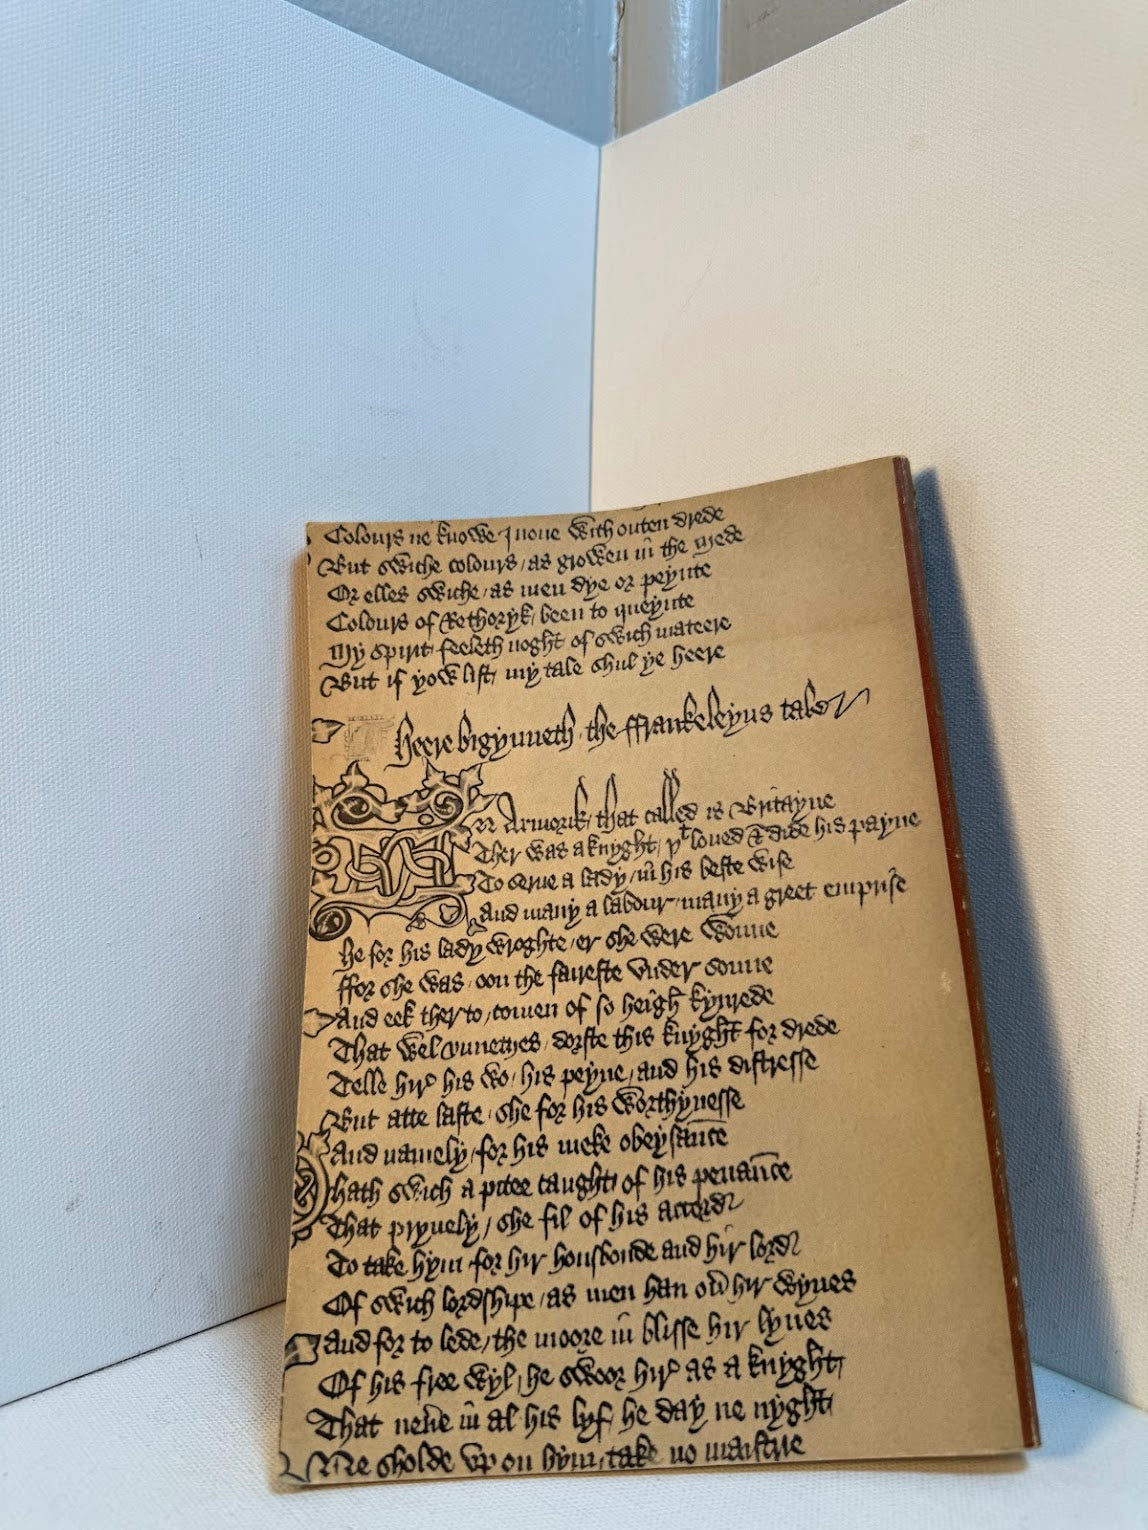 Colours ne knowe I none with outen drede
But swiche colours / as growen in the mede
Or elles swiche / as men dye or peynte
Colours of Rethoryk / been to queynte
My spirit feeleth noght of swich mateere
But if yow list / my tale shul ye heere
Heere bigynneth the ffrankeleyns tale
IN Armorik / that called is Britayne
Ther was a knyght / þt loued & dide his payne
To serue a lady / in his beste wise
And many a labour / many a greet emprise
He for his lady wroghte / er she were wonne
ffor she was / oon the faireste vnder sonne
And eek therto / comen of so heigh kynrede
That wel vnnethes / dorste this knyght for drede
Telle hir his wo / his peyne / and his distresse
But atte laste / she for his worthynesse
And namely / for his meke obeysance
Hath swich a pitee caught / of his penance
That pryuely / she fil of his accord
To take hym for hir housbonde and hir lord
Of swich lordshipe / as men han ou̅ hir wyues
And for to lede / the moore in blisse hir lyues
Of his free wyl / he swoor hir as a knyght
That neu̅e in al his lyf / he day ne nyght
Ne sholde vp on hym / take no maistrie